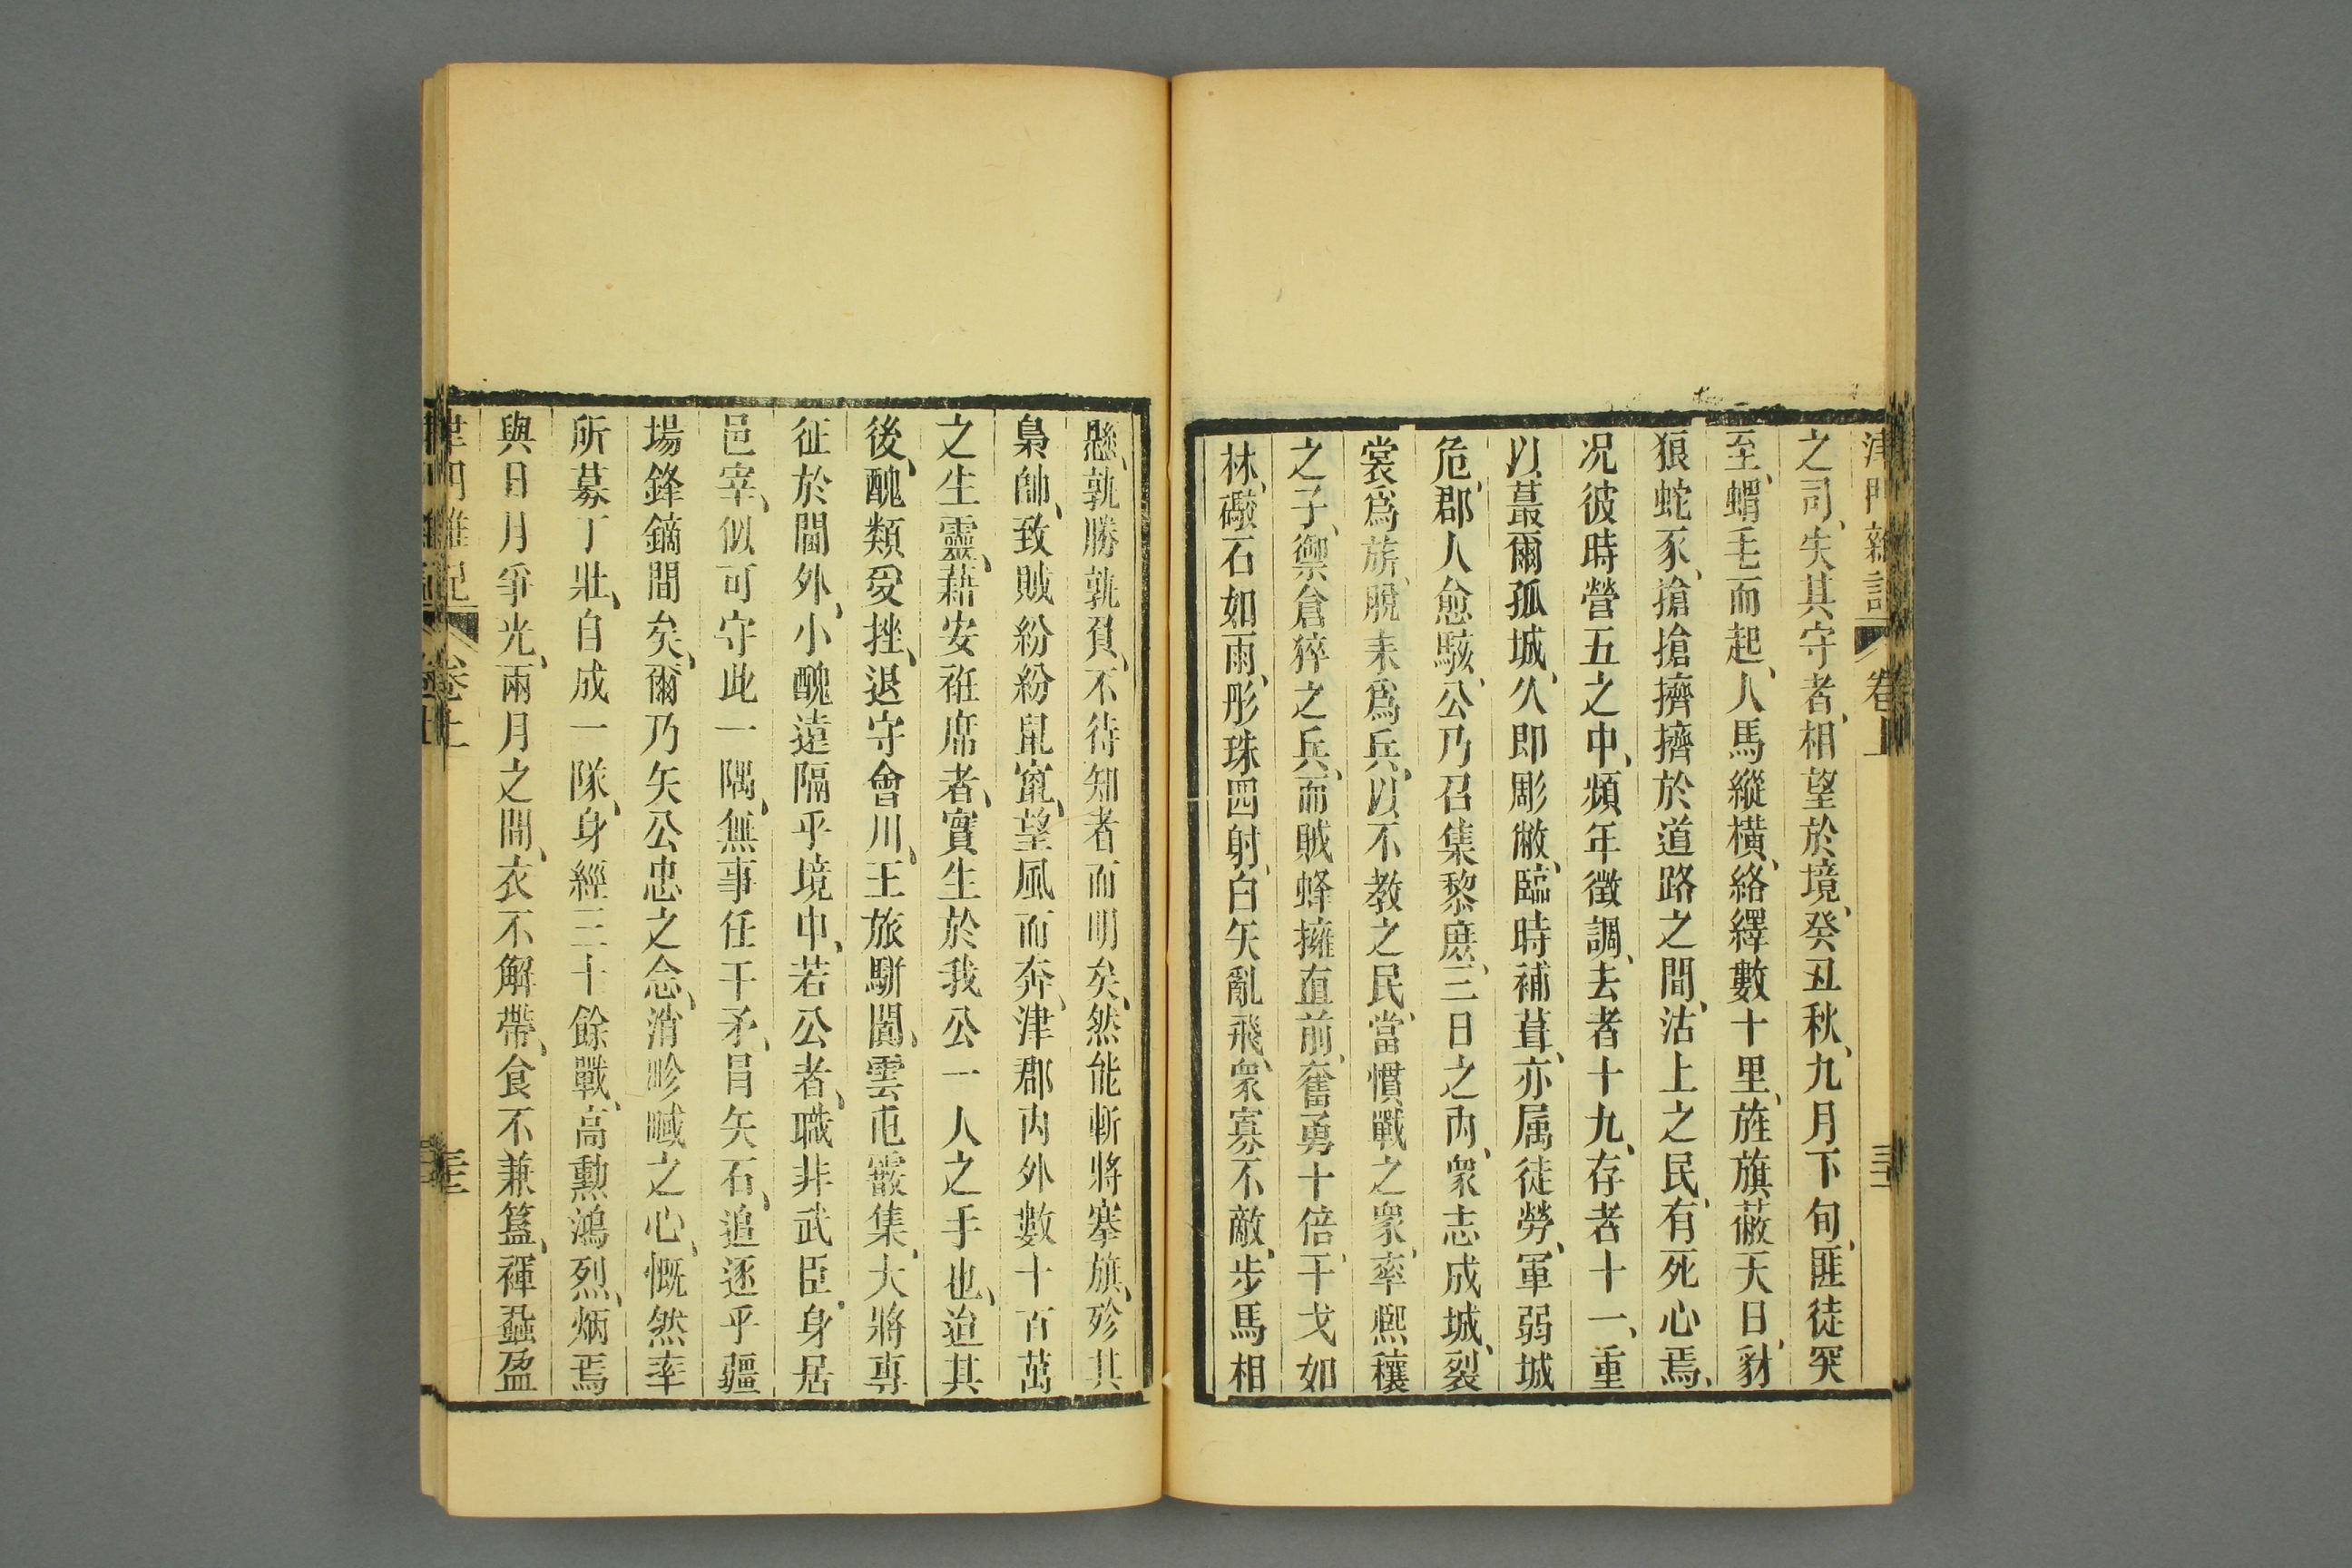 津門雜記 卷上
之司、失其守者、相望於境、癸丑秋、九月下旬、匪徒突
至、蝟毛而起、人馬縱橫、絡繹數十里、旌旗蔽天日、豺
狼蛇豕、搶搶擠擠於道路之間、沽上之民、有死心焉、
况彼時營五之中、頻年徵調、去者十九、存者十一、重
以蕞爾孤城、久即彫敝、臨時補葺、亦属徒勞、軍弱城
危、郡人愈駭、公乃召集黎庶、三日之內、衆志成城、裂
裳爲旂、脫耒爲兵、以不教之民、當慣戰之衆、率熙穰
之子、禦倉猝之兵、而賊蜂擁直前、奮勇十倍、干戈如
林、礮石如雨、彤珠四射、白矢亂飛、衆寡不敵、步馬相
懸、孰勝孰負、不待知者而明矣、然能斬將搴旗、殄其
梟帥、致賊紛紛鼠竄、望風而奔、津郡內外數十百萬
之生靈、藉安袵席者、實生於我公一人之手也、迨其
後、醜類受挫、退守會川、王旅駢闐、雲屯霰集、大將專
征於閫外、小醜遠隔乎境中、若公者、職非武臣、身居
邑宰、似可守此一隅、無事任干矛、冒矢石、追逐乎疆
場鋒鏑間矣、爾乃矢公忠之念、消畛域之心、慨然率
所募丁壯、自成一隊、身經三十餘戰、高勳鴻烈、炳焉
與日月爭光、兩月之間、衣不解帶、食不兼簋、褌蝨盈
津門雜記 卷上